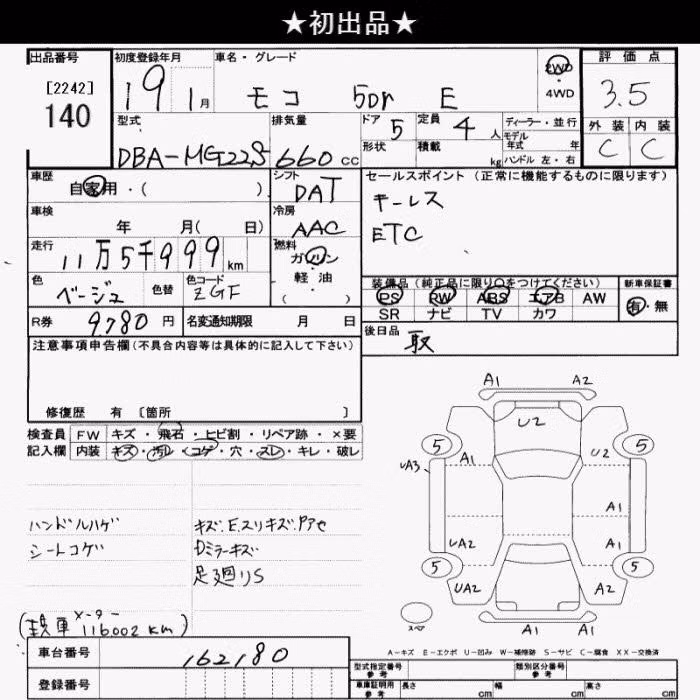 ★初出品★
出品番号
[2242]
140
初度登録年月
19 1月
車名・グレード
モコ 5Dr E
2WD
・
4WD
評価点
3.5
外装 内装
C C
型式
DBA-MG22S
排気量
660 cc
ドア 5
形状
定員 4 人
積載 kg
ディーラー・並行
モデル
年式 年
ハンドル 左・右
車歴
自家用・( )
シフト
DAT
車検
年 月( 日)
冷房
AAC
走行
11万5千999km
燃料
ガソリン
・
軽・油
( )
色
ベージュ
色替
色コード
ZGF
R券 9780 円
名変通知期限 月 日
セールスポイント (正常に機能するものに限ります)
キーレス
ETC
装備品(純正品に限り○をつけてください)
PS PW ABS エアB AW
SR ナビ TV カワ
新車保証書
有・無
後日品
取
注意事項申告欄(不具合内容等は具体的に記入して下さい)
修復歴 有 〔箇所 〕
検査員
記入欄
FW キズ・飛石・ヒビ割・リペア跡・×要
内装 キズ・汚レ・コゲ・穴・スレ・キレ・破レ
ハンドルハゲ
シートコゲ
キズ.E.スリキズ.Pアセ
Dミラーキズ
足廻りS
メーター
116002km)
車台番号 162180
登録番号
A1 A2
U2
5 5
A1 U2
UA3
A1
UA2 A1
5 5
UA2 A2
A1 A1
スペア
A-キズ E-エクボ U-凹み W-補修跡 S-サビ C-腐食 XX-交換済
型式指定番号
参考
類別区分番号
参考
車庫証明用
参考
長さ cm 幅 cm 高さ cm